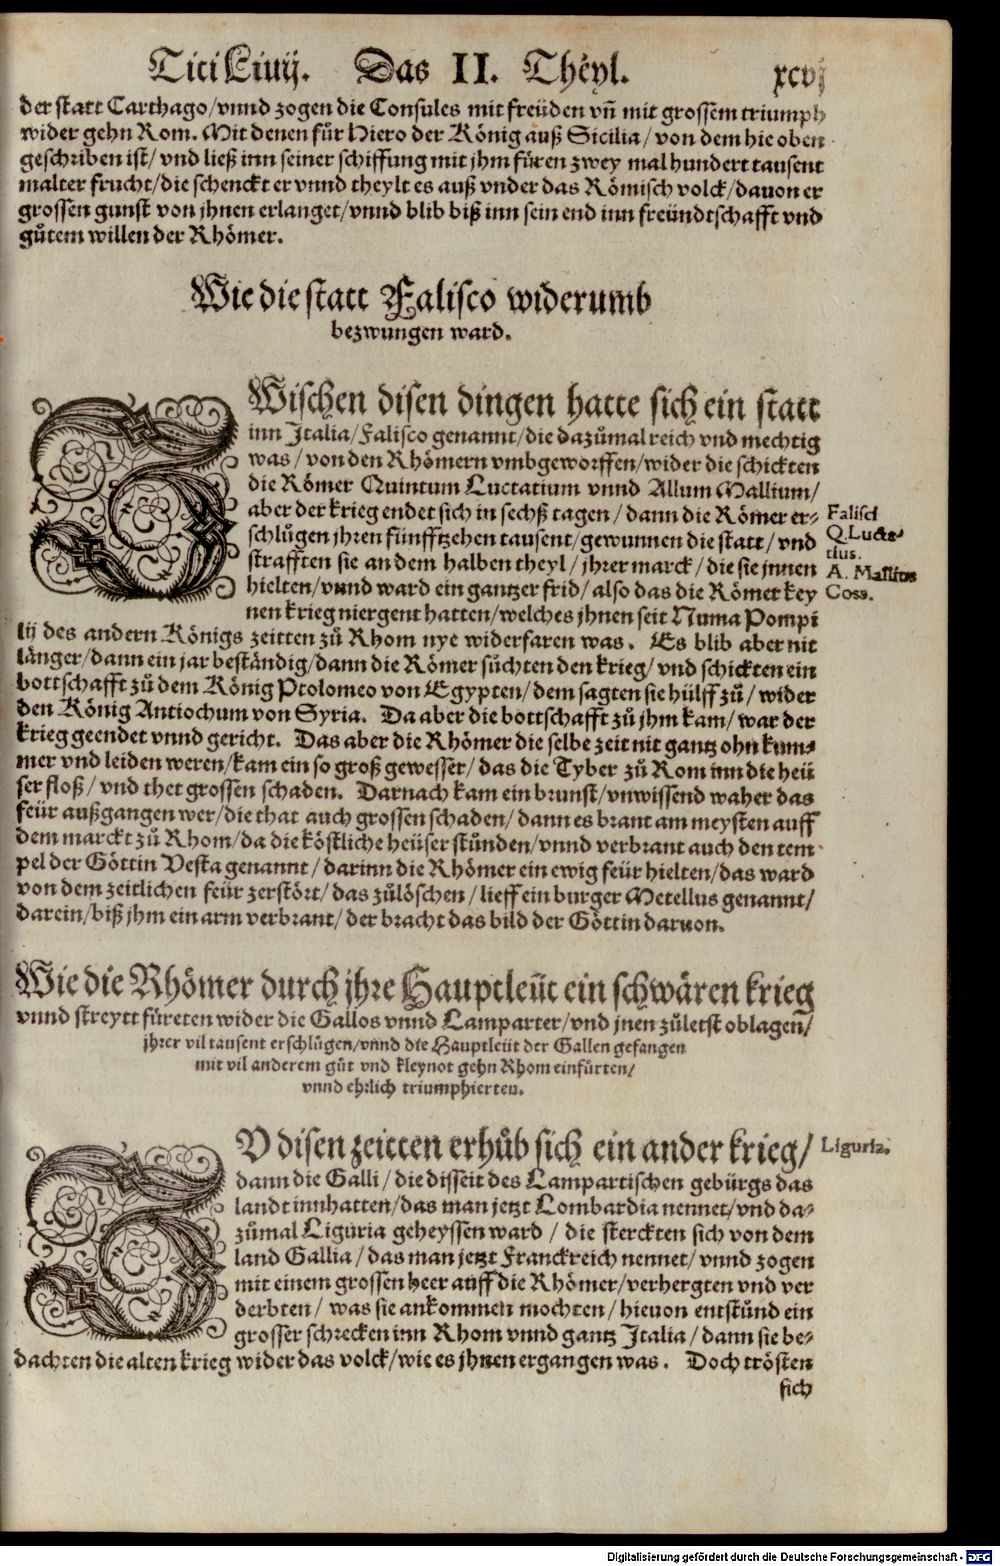 Titi Liuij. Das II. Theyl. xcvj
der statt Carthago/vnnd zogen die Consules mit freüden vñ mit grossem triumph
wider gehn Rom. Mit denen für Hiero der König auß Sicilia/von dem hie oben
geschriben ist/vnd ließ inn seiner schiffung mit jhm füren zwey mal hundert tausent
malter frucht/die schenckt er vnnd theylt es auß vnder das Römisch volck/dauon er
grossen gunst von jhnen erlanget/vnnd blib biß inn sein end inn freündtschafft vnd
gůtem willen der Rhömer.
Wie die statt Falisco widerumb
bezwungen ward.
ZWischen disen dingen hatte sich ein statt
inn Italia/Falisco genannt/die dazůmal reich vnd mechtig
was/von den Rhömern vmbgeworffen/wider die schickten
die Römer Quintum Luctatium vnnd Allum Mallium/
aber der krieg endet sich in sechß tagen/dann die Römer er-
schlůgen jhren fünfftzehen tausent/gewunnen die statt/vnd
strafften sie an dem halben theyl/jhrer marck/die sie jnnen
hielten/vnnd ward ein gantzer frid/also das die Römer key
nen krieg niergent hatten/welches jhnen seit Numa Pompi
lij des andern Königs zeitten zů Rhom nye widerfaren was. Es blib aber nit
länger/dann ein jar beständig/dann die Römer sůchten den krieg/vnd schickten ein
bottschafft zů dem König Ptolomeo von Egypten/dem sagten sie hülff zů/wider
den König Antiochum von Syria. Da aber die bottschafft zů jhm kam/war der
krieg geendet vnnd gericht. Das aber die Rhömer die selbe zeit nit gantz ohn kum-
mer vnd leiden weren/kam ein so groß gewesser/das die Tyber zů Rom inn die heü
ser floß/vnd thet grossen schaden. Darnach kam ein brunst/vnwissend waher das
feür außgangen wer/die that auch grossen schaden/dann es brant am meysten auff
dem marckt zů Rhom/da die köstliche heüser stůnden/vnnd verbrant auch den tem
pel der Göttin Vesta genannt/darinn die Rhömer ein ewig feür hielten/das ward
von dem zeitlichen feür zerstört/das zůlöschen/lieff ein burger Metellus genannt/
darein/biß jhm ein arm verbrant/der bracht das bild der Göttin daruon.
Falisci
Q. Lucta-
tius.
A. Mallius
Coss.
Wie die Rhömer durch jhre Hauptleüt ein schwären krieg
vnnd streytt füreten wider die Gallos vnnd Lamparter/vnd jnen zůletst oblagen/
jhrer vil tausent erschlůgen/vnnd die Hauptleüt der Gallen gefangen
mit vil anderem gůt vnd kleynot gehn Rhom einfürten/
vnnd ehrlich triumphierten.
ZV disen zeitten erhůb sich ein ander krieg/
dann die Galli/die disseit des Lampartischen gebürgs das
landt innhatten/das man jetzt Lombardia nennet/vnd da-
zůmal Liguria geheyssen ward/die sterckten sich von dem
land Gallia/das man jetzt Franckreich nennet/vnnd zogen
mit einem grossen heer auff die Rhömer/verhergten vnd ver
derbten/was sie ankommen mochten/hieuon entstůnd ein
grosser schrecken inn Rhom vnnd gantz Italia/dann sie be-
dachten die alten krieg wider das volck/wie es jhnen ergangen was. Doch trösten
Liguria.
sich
Digitalisierung gefördert durch die Deutsche Forschungsgemeinschaft - DFG